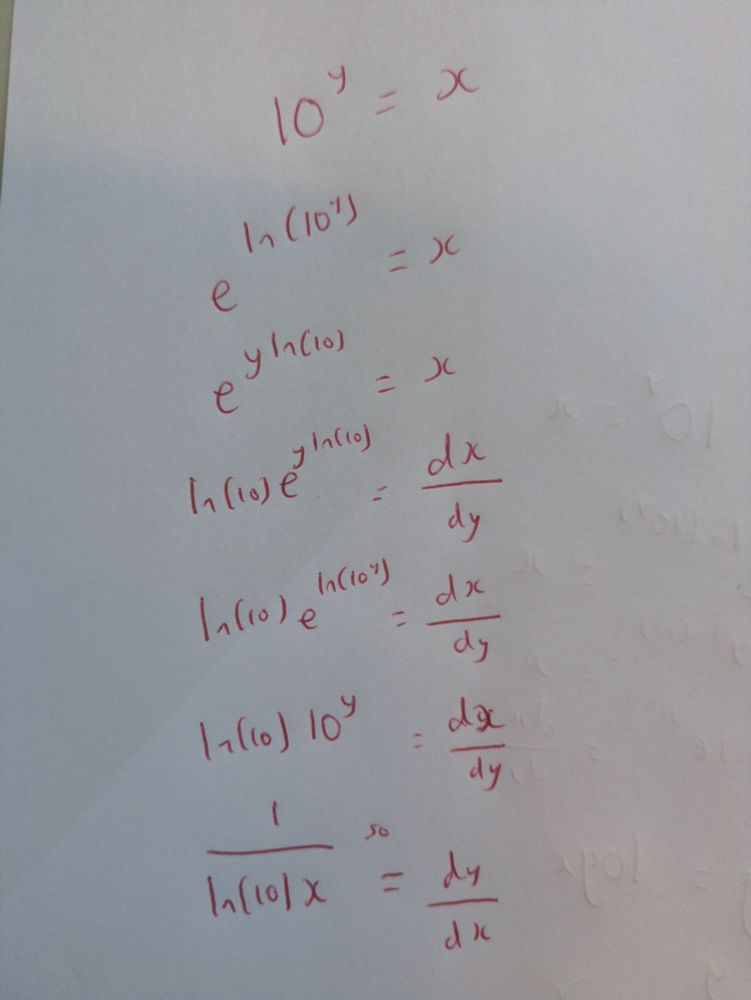 10^y = x
e^ln(10^y) = x
e^y ln(10) = x
ln(10) e^y ln(10) = dx/dy
ln(10) e^ln(10^y) = dx/dy
ln(10) 10^y = dx/dy
1/ln(10)x so = dy/dx